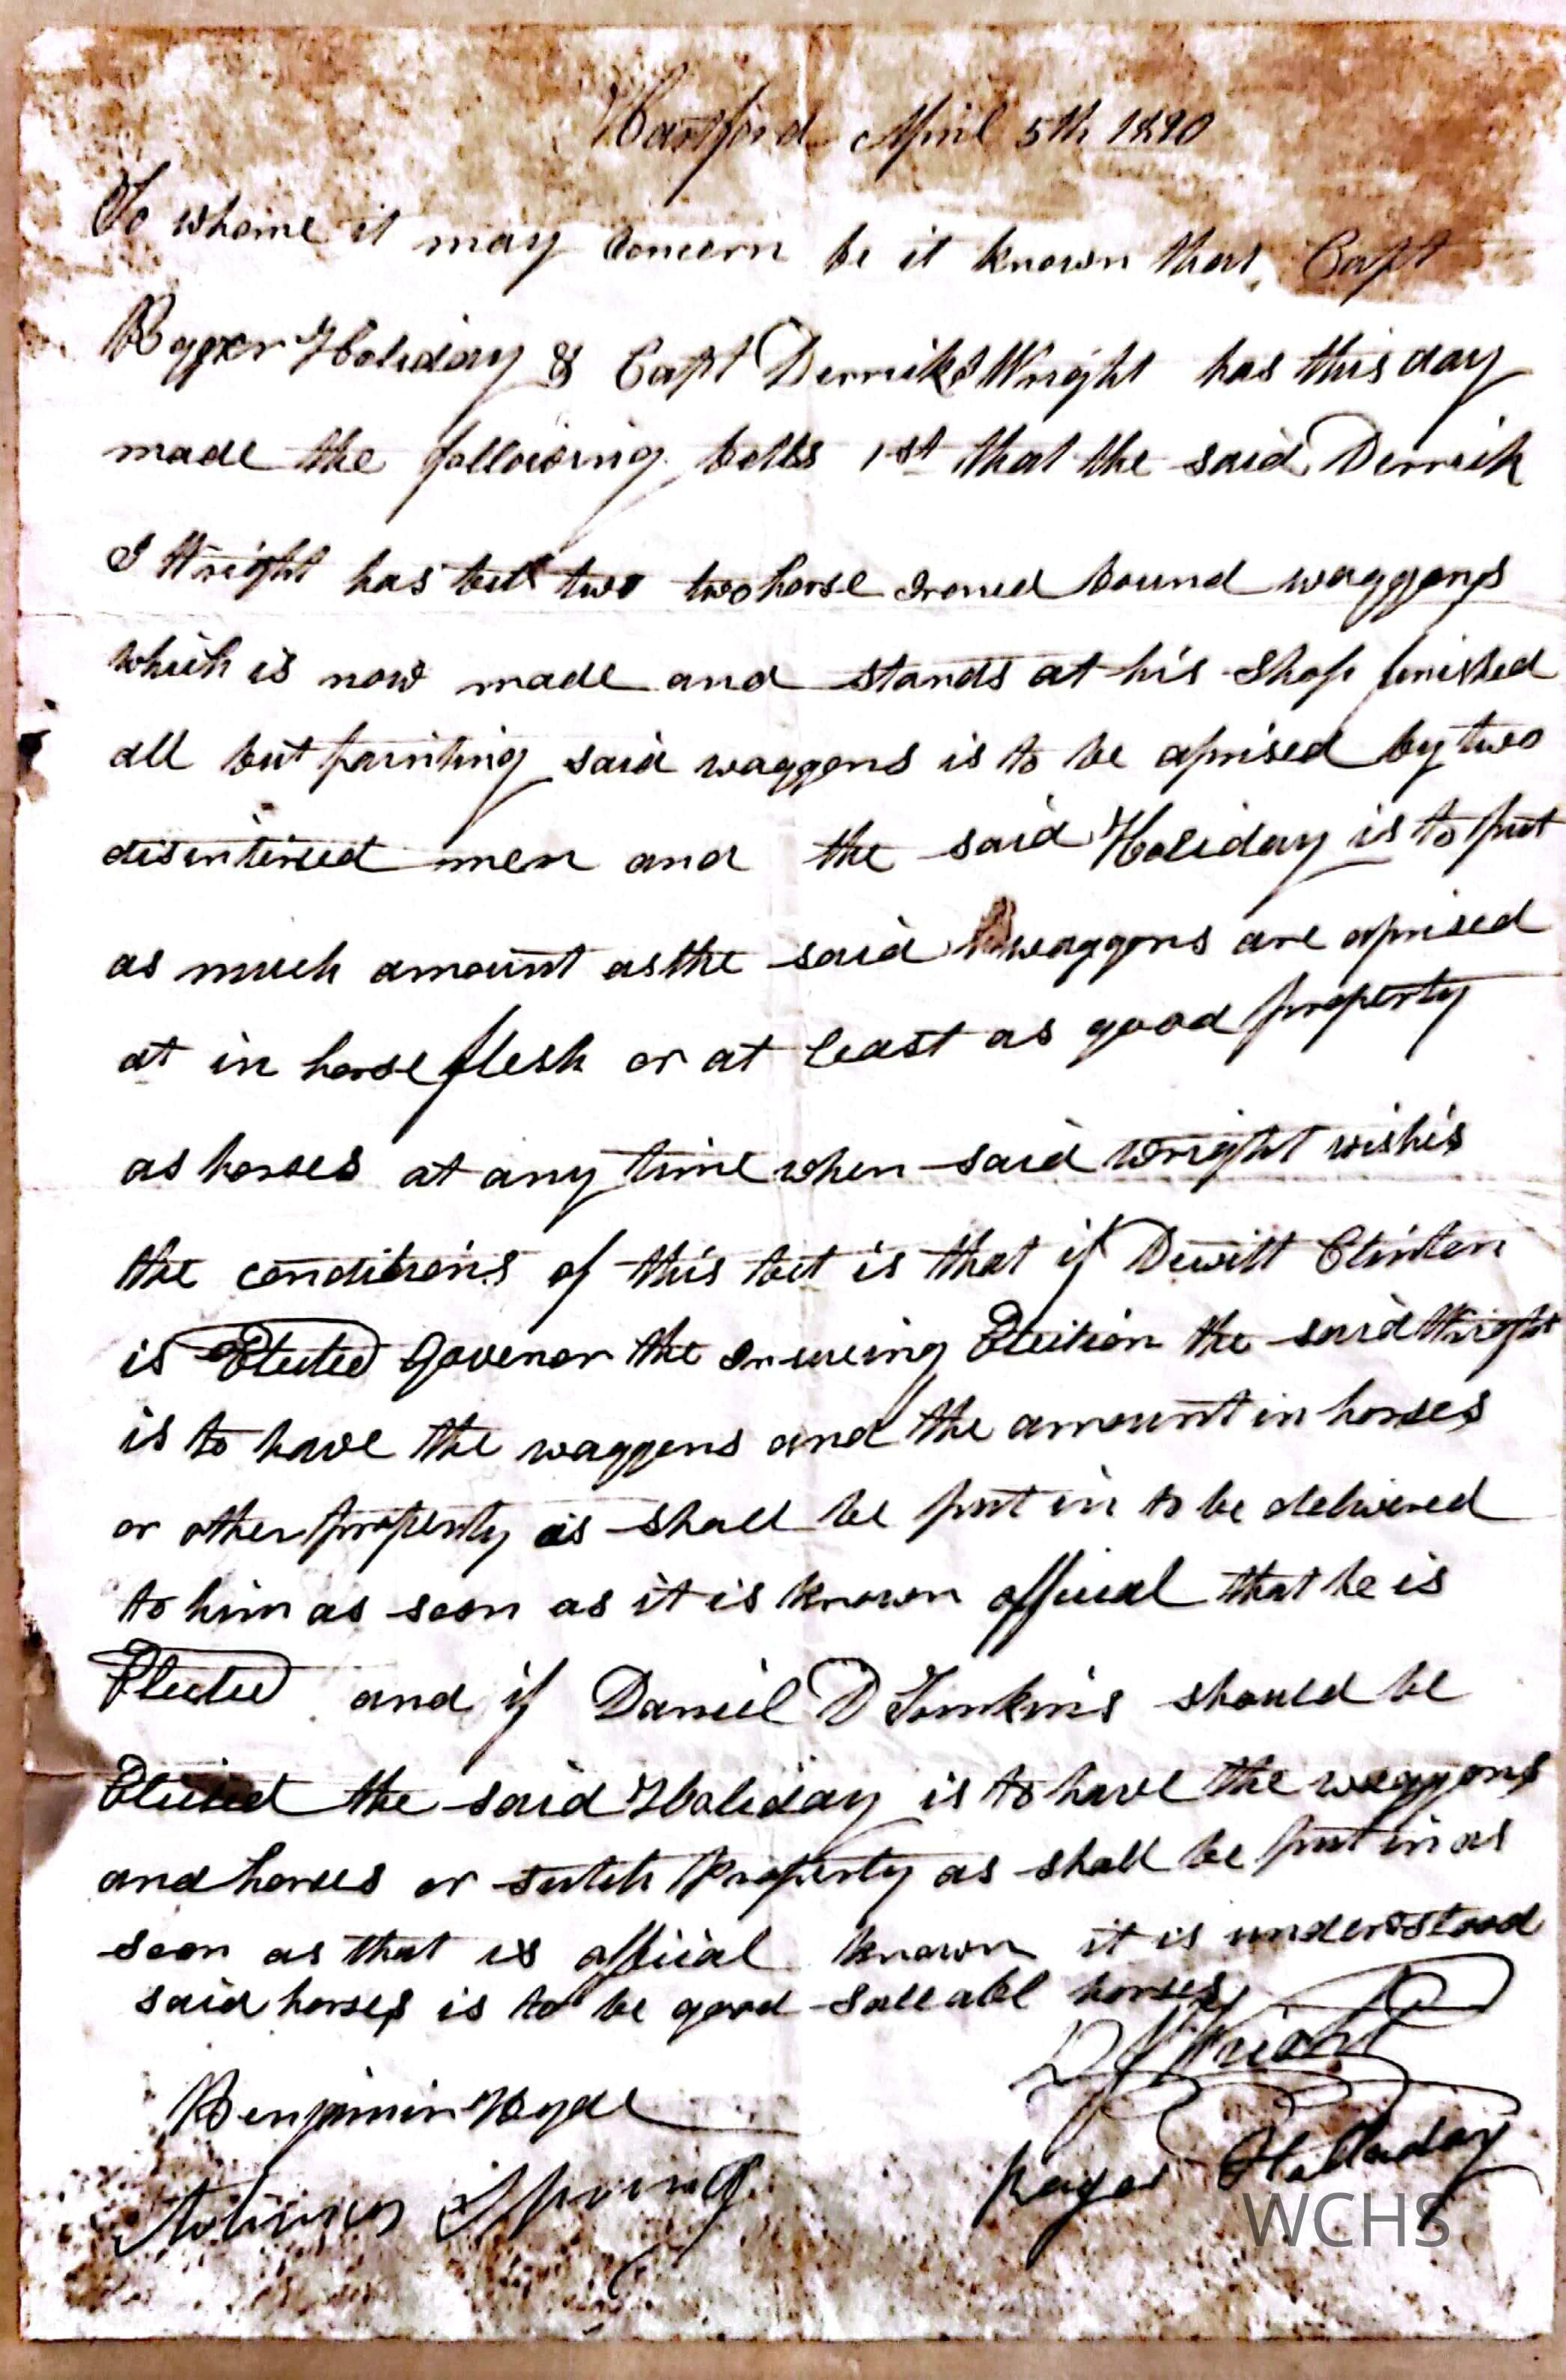 Hartford April 5th 1820
To whome it may concern be it known that Capt
Rogger Holiday & Capt Derrick I Wright has this day
made the following betts 1st that the said Derrick
I Wright has bett two two horse Ironed bound waggons
which is now made and stands at his Shop finished
all but painting said waggons is to be aprised by two
disintirsed men and the said Holiday is to put
as much amount as the said waggons are aprised
at in horse flesh or at least as good property
as horses at any time when said Wright wishis
the conditions of this bet is that if Dewitt Clinton
is Elected Govenor the Insueing Election the said Wright
is to have the waggons and the amount in horses
or other property as shall be put in to be delivered
to him as soon as it is known official that he is
Elected and if Daniel D Tomkins should be
Elected the said Holiday is to have the waggons
and horses or sutch Property as shall be put in as
soon as that is official known it is understood
said horses is to be good saleabel horses
D I Wright
Benjamin Hyde
Roger Halladay
Spring
WCHS